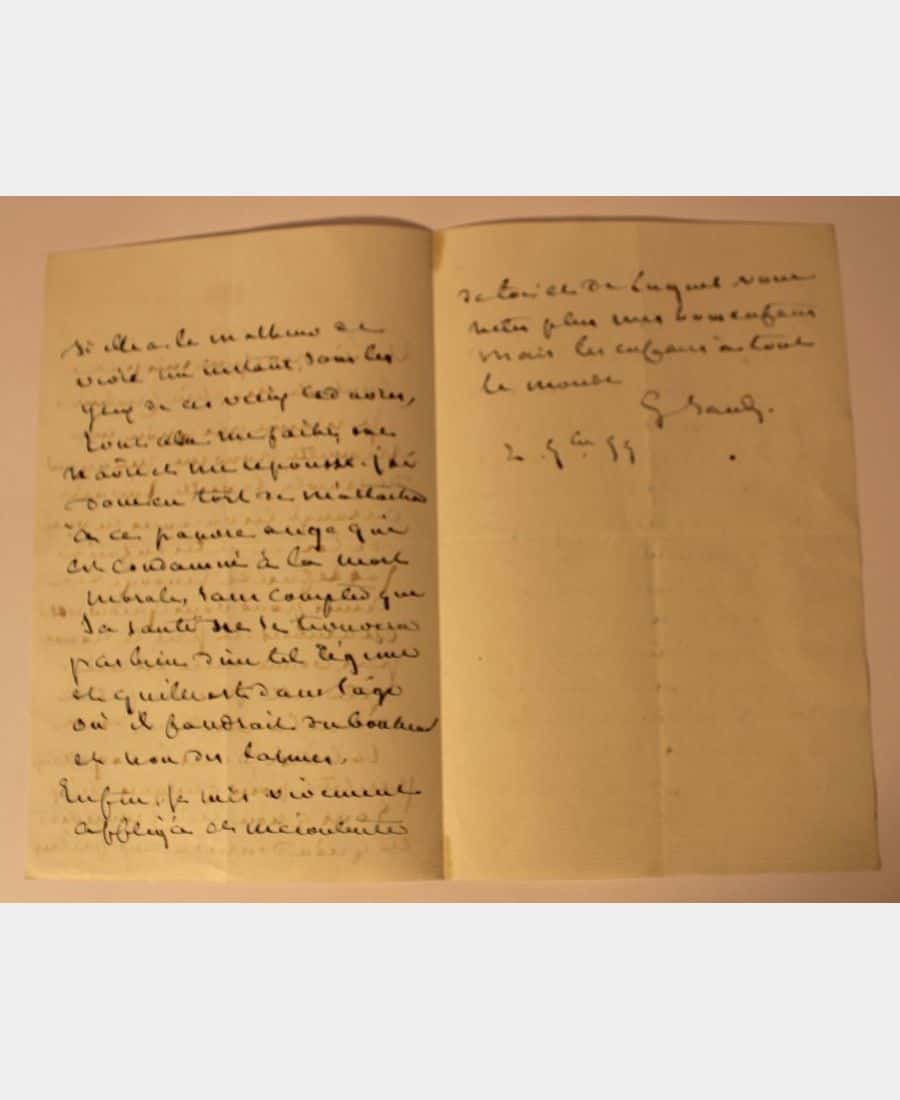 si elle a le malheur de
vivre un instant sous les
yeux de ces
Tout cela me
navre et me repousse. j'ai
donc eu tort de m'attacher
à ce pauvre ange qui
est condamné à la mort
morale, sans compter que
sa santé ne se trouvera
pas bien d'un tel régime
et qu'elle est dans l'âge
où il faudrait du bonheur
et non des larmes.
Enfin, je suis vivement
affligée et mécontente
de toi et de Luguet. vous
n'êtes plus mes bons enfans
mais les enfans à tout
le monde
G Sand.
2 9bre 55